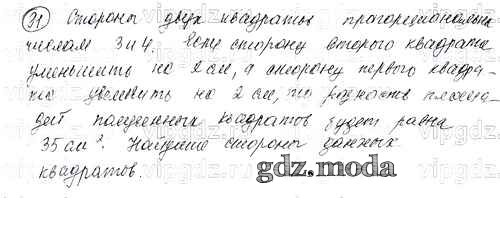 31) Стороны двух квадратов пропорциональны
числам 3 и 4. Если сторону второго квадрата
уменьшить на 2 см, а сторону первого квадра-
та увеличить на 2 см, то разность площа-
дей полученных квадратов будет равна
35 см². Найдите стороны данных
квадратов.
gdz.moda